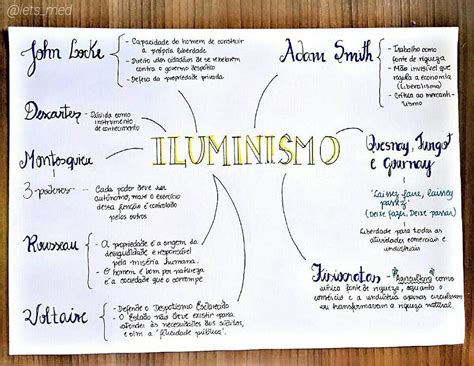 @lets_med
John Locke
- Capacidade do homem de construir
a própria liberdade
- Direito dos cidadãos de se rebelarem
contra o governo despótico
- Defesa da propriedade privada
Descartes - Dúvida como
instrumento
de conhecimento
Montesquieu
3 poderes - Cada poder deve ser
autônomo, mas o exercício
dessa função é controlado
pelos outros
Rousseau
- A propriedade é a origem da
desigualdade e responsável
pela miséria humana.
- O homem é bom por natureza
é a sociedade que o corrompe
Voltaire
- Defende o Despotismo Esclarecido
- O Estado não deve existir para
atender às necessidades dos súditos,
e sim a "felicidade pública".
ILUMINISMO
Adam Smith
- Trabalho como
fonte de riqueza
- Mão invisível que
regula a economia
(liberalismo)
- Crítica ao mercanti-
lismo
Quesnay, Turgot
e Gournay
"Laissez faire, laissez
passez"
(Deixe fazer, Deixe passar)
Liberdade para todas as
atividades comerciais e
industriais
Fisiocratas - Agricultura como
única fonte de riqueza, enquanto o
comércio e a indústria apenas circulavam
ou transformavam a riqueza natural.